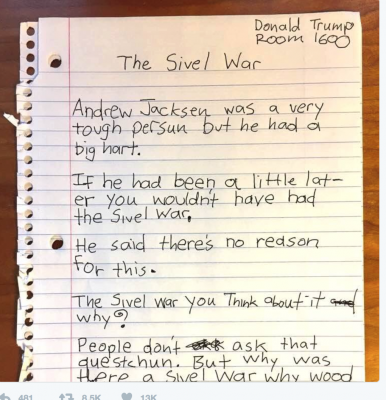 Donald Trump
Room 1600
The Sivel War
Andrew Jacksen was a very
tough persun but he had a
big hart.
If he had been a little lat-
er you wouldn't have had
the Sivel War.
He said there's no redson
for this.
The Sivel war you Think about it and
why?
People don't ask ask that
questchun. But why was
there a Sivel War why wood
481 8.5K 13K